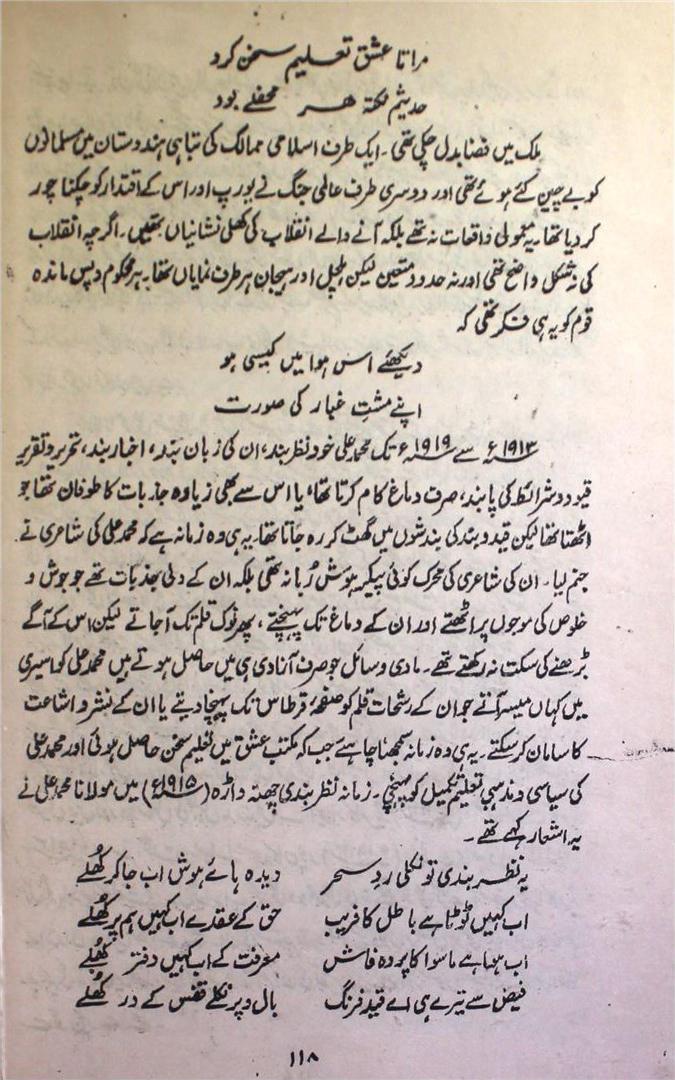 مرا تا عشق تعلیم سخن کرد
حدیثم نکتہ ھر محفلے بود
ملک میں فضا بدل چکی تھی۔ ایک طرف اسلامی ممالک کی تباہی ہندوستان میں مسلمانوں
کو بے چین کئے ہوئے تھی اور دوسری طرف عالمی جنگ نے یورپ اور اس کے اقتدار کو چکنا چور
کر دیا تھا۔ یہ معمولی واقعات نہ تھے بلکہ آنے والے انقلاب کی کھلی نشانیاں تھیں۔ اگرچہ انقلاب
کی نہ شکل واضح تھی اور نہ حدود متعین لیکن ہلچل اور ہیجان ہر طرف نمایاں تھا۔ ہر محکوم و پس ماندہ
قوم کو یہ ہی فکر تھی کہ
دیکھئے اس ہوا میں کیسی ہو
اپنے مشتِ غبار کی صورت
۱۹۱۴ء سے ۱۹۱۹ء تک محمد علی خود نظر بند، ان کی زبان بند، اخبار بند، تحریر و تقریر
قیود و شرائط کی پابند، صرف دماغ کام کرتا تھا، یا اس سے بھی زیادہ جذبات کا طوفان تھا جو
اٹھتا تھا لیکن قید و بند کی بندشوں میں گھٹ کر رہ جاتا تھا۔ یہ ہی وہ زمانہ ہے کہ محمد علی کی شاعری نے
جنم لیا۔ ان کی شاعری کی محرک کوئی پیکر ہوش رُبا نہ تھی بلکہ ان کے دلی جذبات تھے جو جوش و
خلوص کی موجوں پر اٹھتے اور ان کے دماغ تک پہنچتے، پھر نوک قلم تک آ جاتے لیکن اس کے آگے
بڑھنے کی سکت نہ رکھتے تھے۔ مادی وسائل جو صرف آزادی ہی میں حاصل ہوتے ہیں محمد علی کو اسیری
میں کہاں میسر آتے جو ان کے رشحات قلم کو صفحۂ قرطاس تک پہنچا دیتے یا ان کے نشر و اشاعت
کا سامان کر سکتے۔ یہ ہی وہ زمانہ سمجھنا چاہئے جب کہ مکتب عشق میں تعلیم سخن حاصل ہوئی اور محمد علی
کی سیاسی و مذہبی تعلیم تکمیل کو پہنچی۔ زمانہ نظر بندی چھنڈ واڑہ (۱۹۱۵ء) میں مولانا محمد علی نے
یہ اشعار کہے تھے۔
یہ نظر بندی تو نکلی ردِ سحر دیدہ ہائے ہوش اب جا کر کُھلے
اب کہیں ٹوٹا ہے باطل کا فریب حق کے عقدے اب کہیں ہم پر کُھلے
اب ہوا ہے ماسوا کا پردہ فاش معرفت کے اب کہیں دفتر کُھلے
فیض سے تیرے ہی اے قیدِ فرنگ بال و پر نکلے قفس کے در کُھلے
۱۱۸